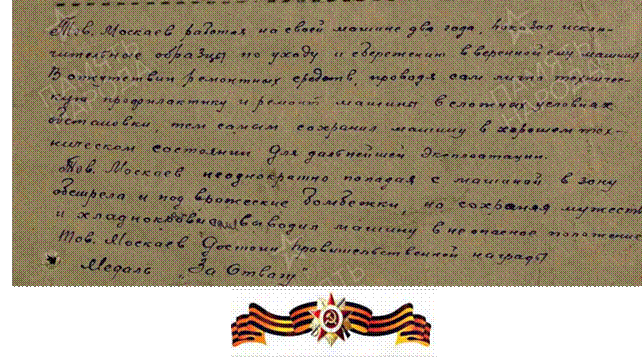 Тов. Москаев работая на своей машине два года, показал исклю-
чительные образцы по уходу и сбережению вверенной ему машины
В отсутствии ремонтных средств, проводя сам лично техничес-
кую профилактику и ремонт машины в сложных условиях
обстановки, тем самым сохранил машину в хорошем тех-
ническом состоянии для дальнейшей эксплоатации.
Тов. Москаев неоднократно попадая с машиной в зону
обстрела и под вражеские бомбежки, но сохраняя мужеств
и хладнокровие выводил машину в неопасное положение
Тов. Москаев Достоин правительственной награды
Медаль „За Отвагу"
ПАМЯТЬ
НАРОДА
ПАМЯТЬ
НАРОДА
ПАМЯТЬ